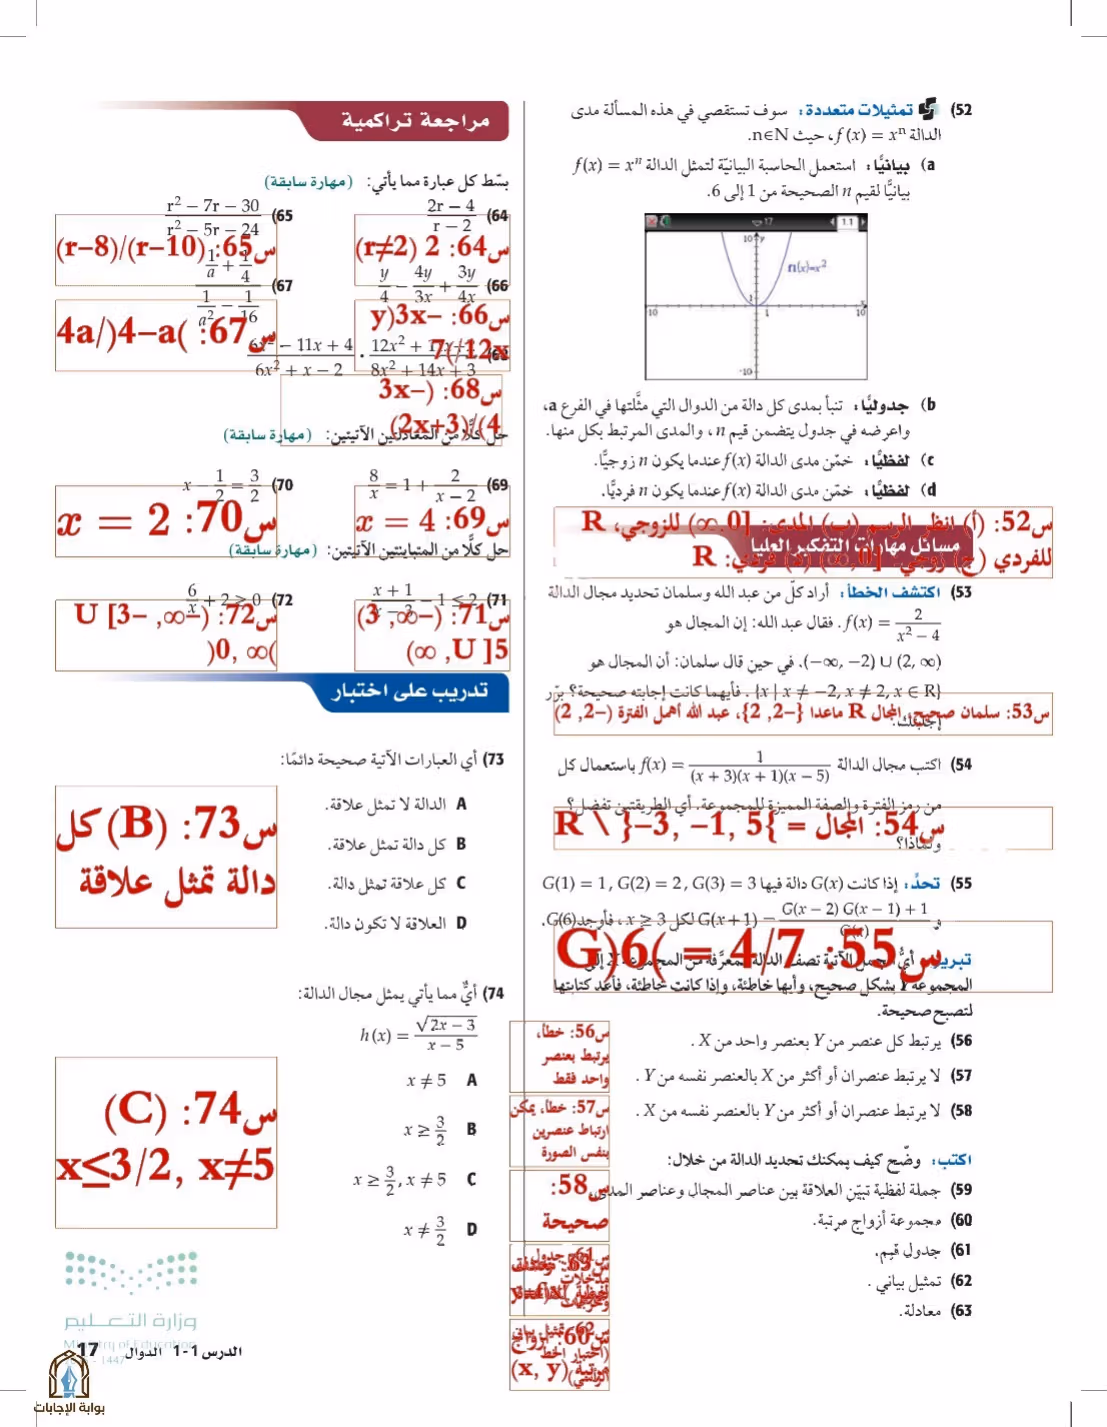 52) تمثيلات متعددة: سوف تستقصي في هذه المسألة مدى
الدالة f(x) = xⁿ، حيث n∈N.
a) بيانيًّا: استعمل الحاسبة البيانيّة لتمثل الدالة f(x) = xⁿ
بيانيًّا لقيم n الصحيحة من 1 إلى 6.
1.1
17
10 y
f1(x)=x²
1
-10
1
10
x
-10
b) جدوليًّا: تنبأ بمدى كل دالة من الدوال التي مثَّلتها في الفرع a،
واعرضه في جدول يتضمن قيم n، والمدى المرتبط بكل منها.
c) لفظيًّا: خمّن مدى الدالة f(x) عندما يكون n زوجيًّا.
d) لفظيًّا: خمّن مدى الدالة f(x) عندما يكون n فرديًّا.
س52: (أ) انظر الرسم (ب) المدى: [0,∞) للزوجي، R
للفردي (ج) زوجي: [0,∞) (د) فردي: R
مسائل مهارات التفكير العليا
53) اكتشف الخطأ: أراد كلّ من عبد الله وسلمان تحديد مجال الدالة
f(x) = 2/(x² − 4). فقال عبد الله: إن المجال هو
(−∞, −2) ∪ (2, ∞). في حين قال سلمان: أن المجال هو
{x | x ≠ −2, x ≠ 2, x ∈ R}. فأيهما كانت إجابته صحيحة؟ برّر
إجابتك.
س53: سلمان صحيح، المجال R ماعدا {−2, 2}، عبد الله أهمل الفترة (−2, 2)
54) اكتب مجال الدالة f(x) = 1/((x + 3)(x + 1)(x − 5)) باستعمال كل
من رمز الفترة والصفة المميزة للمجموعة. أي الطريقتين تفضل؟
ولماذا؟
س54: المجال = R \ }−3, −1, 5{
55) تحدٍّ: إذا كانت G(x) دالة فيها G(1) = 1, G(2) = 2, G(3) = 3
و G(x + 1) = (G(x − 2) G(x − 1) + 1)/G(x) لكل x ≥ 3، فأوجد G(6).
س55: G)6( = 4/7
تبرير: أيُّ الجمل الآتية تصف الدالة المعرَّفة من المجموعة X إلى
المجموعة Y بشكل صحيح، وأيها خاطئة، وإذا كانت خاطئة، فأعد كتابتها
لتصبح صحيحة.
56) يرتبط كل عنصر من Y بعنصر واحد من X .
57) لا يرتبط عنصران أو أكثر من X بالعنصر نفسه من Y .
58) لا يرتبط عنصران أو أكثر من Y بالعنصر نفسه من X .
س56: خطأ، يرتبط بعنصر واحد فقط
س57: خطأ، يمكن ارتباط عنصرين بنفس الصورة
س58: صحيحة
اكتب: وضّح كيف يمكنك تحديد الدالة من خلال:
59) جملة لفظية تبيّن العلاقة بين عناصر المجال وعناصر المدى.
60) مجموعة أزواج مرتبة.
61) جدول قيم.
62) تمثيل بياني .
63) معادلة.
مراجعة تراكمية
بسّط كل عبارة مما يأتي: (مهارة سابقة)
64) (2r − 4)/(r − 2)
65) (r² − 7r − 30)/(r² − 5r − 24)
س64: 2 (r≠2)
س65: (r−10)/(r−8)
66) y/4 − 4y/3x + 3y/4x
67) (1/a + 1/4)/(1/a² − 1/16)
س66: y(3x−
7(/12x
س67: 4a/)4−a(
− 11x + 4
6x² + x − 2
12x² +
8x² + 14x + 3
س68: (3x−
4)/(2x+3)
حل كلًّا من المعادلتين الآتيتين: (مهارة سابقة)
69) 8/x = 1 + 2/(x − 2)
70) x − 1/2 = 3/2
س69: x = 4
س70: x = 2
حل كلًّا من المتباينتين الآتيتين: (مهارة سابقة)
71) (x + 1)/(x − 3) − 1 ≤ 2
72) 6/x + 2 ≥ 0
س71: (−∞, 3)
U ]5, ∞)
س72: (−∞, −3] U
)0, ∞(
تدريب على اختبار
73) أي العبارات الآتية صحيحة دائمًا:
A الدالة لا تمثل علاقة.
B كل دالة تمثل علاقة.
C كل علاقة تمثل دالة.
D العلاقة لا تكون دالة.
س73: (B) كل
دالة تمثل علاقة
74) أيٌّ مما يأتي يمثل مجال الدالة:
h(x) = √(2x − 3)/(x − 5)
A x ≠ 5
B x ≥ 3/2
C x ≥ 3/2, x ≠ 5
D x ≠ 3/2
س74: (C)
x≤3/2, x≠5
وزارة التعليم
Ministry of Education
1447
الدرس 1-1 الدوال 17
بوابة الإجابات